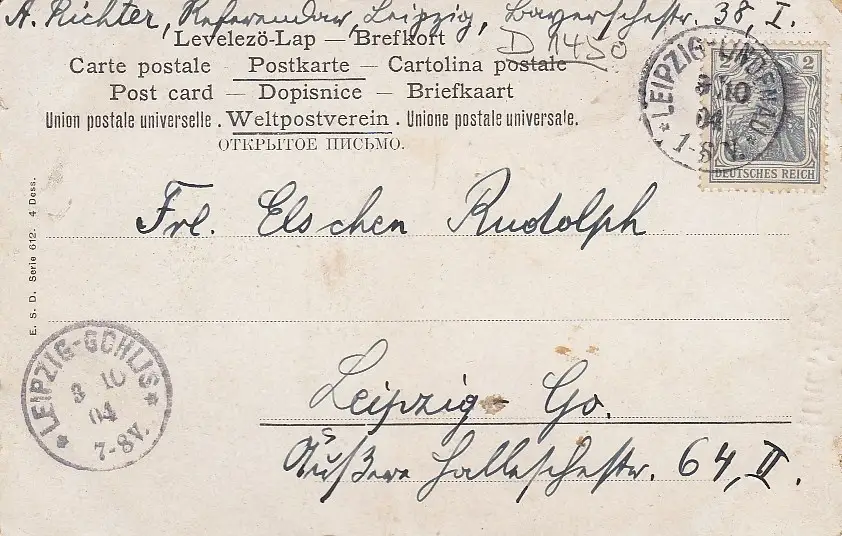 A. Richter, Referendar, Leipzig, Bayerschestr. 38, I.
Levelezö-Lap — Brefkort
D 1450
Carte postale — Postkarte — Cartolina postale
Post card — Dopisnice — Briefkaart
Union postale universelle . Weltpostverein . Unione postale universale.
ОТКРЫТОЕ ПИСЬМО.
LEIPZIG-LINDENAU
10
04
1-8V.
2 2
DEUTSCHES REICH
Frl. Elschen Rudolph
E. S. D. Serie 612. 4 Dess.
LEIPZIG-GOHLIS
3 10
04
7-8V.
Leipzig-Go.
Äußere Halleschestr. 64, II.